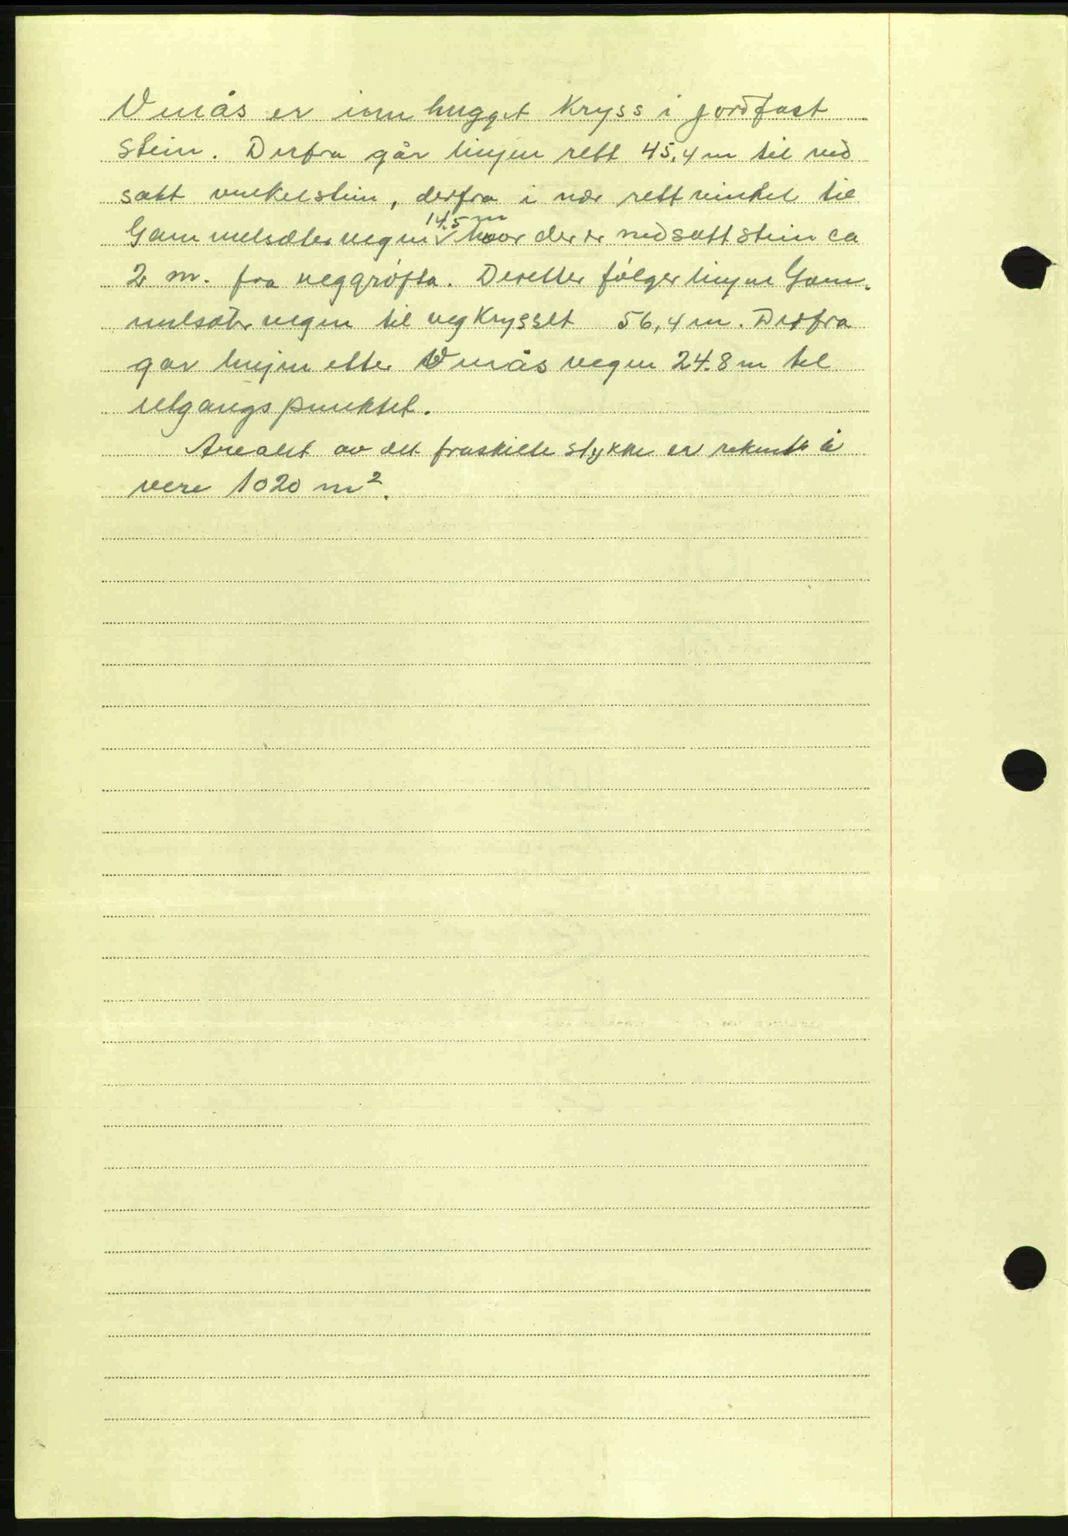 Vmås er innhugget kryss i jordfast
stein. Derfra går linjen rett 45,4 m til ned
satt vinkelstein, derfra i nær rett vinkel til
Gammelsætervegen 14,5 m hvor der er nedsatt stein ca
2 m. fra veggrøfta. Deretter følger linjen Gam-
melsæter vegen til vegkrysset 56,4 m. Derfra
går linjen etter Vmås vegen 24.8 m til
utgangspunktet.
Arealet av det fraskilte stykke er rekent å
vere 1020 m².